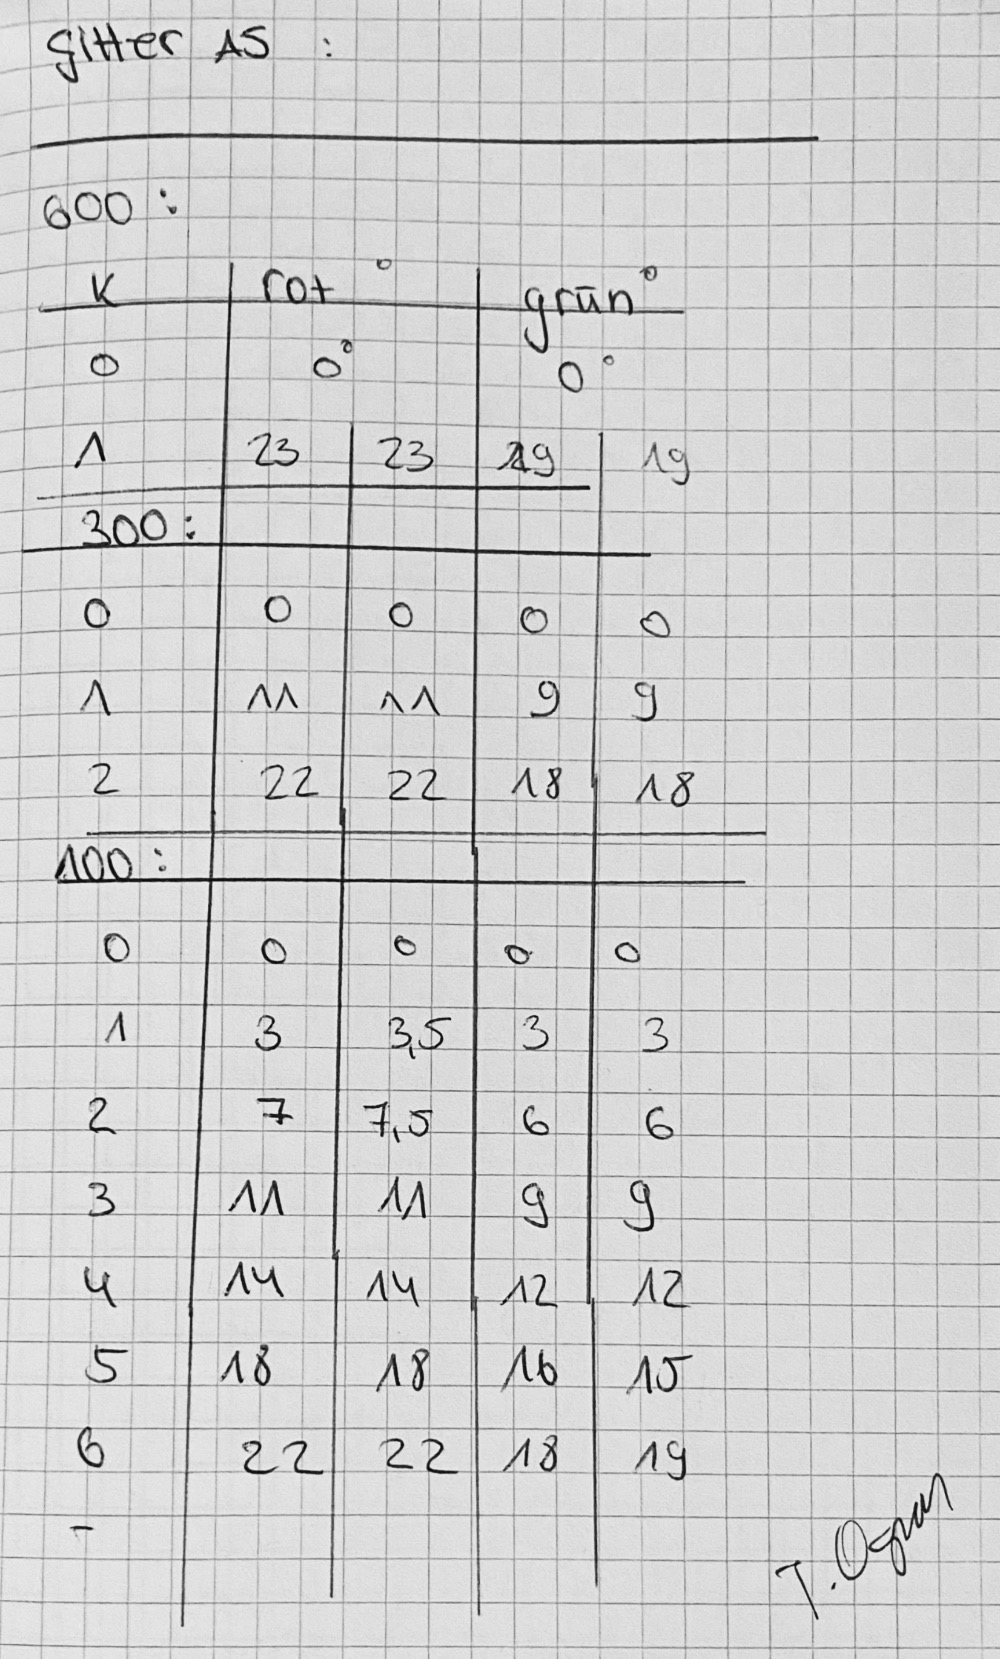 Gitter AS :
600 :
K rot ° grün °
0 0° 0°
1 23 23 19 19
300 :
0 0 0 0 0
1 11 11 9 9
2 22 22 18 18
100 :
0 0 0 0 0
1 3 3,5 3 3
2 7 7,5 6 6
3 11 11 9 9
4 14 14 12 12
5 18 18 16 15
6 22 22 18 19
-